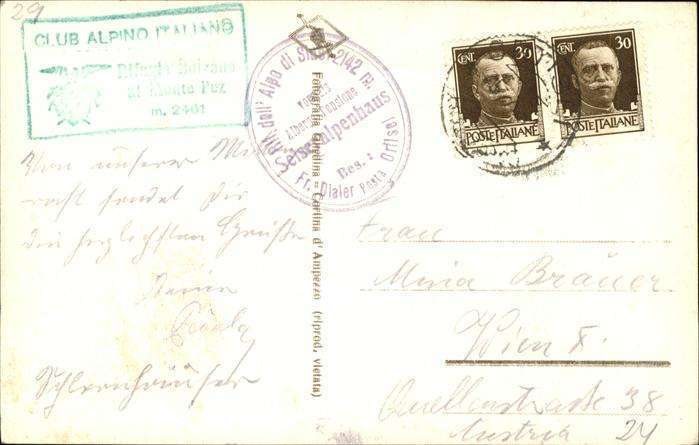 29
CLUB ALPINO ITALIANO
Rifugio Bolzano
al Monte Pez
m. 2461
Rif. dell' Alpe di Siusi 2142 m.
Seiseralpenhaus
Bes.:
Fr. Dialer Posta Ortisei
Fotografia Ghedina = Cortina d' Ampezzo (riprod. vietata)
CENT. 30
POSTE ITALIANE
CENT. 30
POSTE ITALIANE
Von unserer
rast sendet Dir
die herzlichsten Grüße
Deine
Frau
Mina Bräuer
Wien X.
Quellenstraße 38
Austria 24